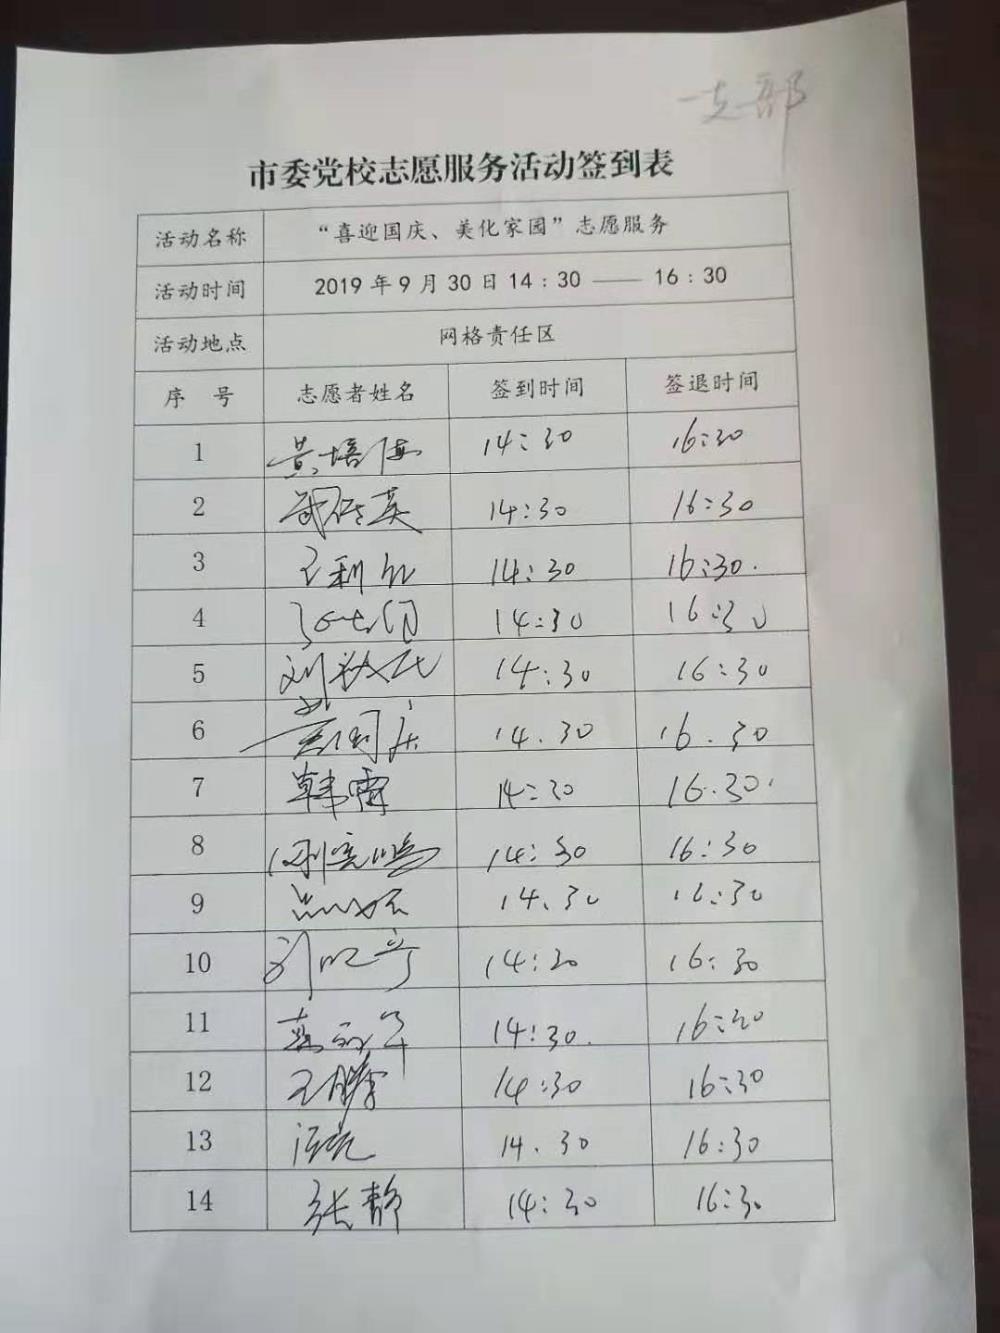 一支部
市委党校志愿服务活动签到表
活动名称 “喜迎国庆、美化家园”志愿服务
活动时间 2019年9月30日14:30——16:30
活动地点 网格责任区
序 号 志愿者姓名 签到时间 签退时间
1 14:30 16:30
2 14:30 16:30
3 14:30 16:30.
4 14:30 16:30
5 14:30 16:30
6 14.30 16.30
7 韩雷 14:30 16.30.
8 14:30 16:30
9 14.30 16:30
10 14:30 16:30
11 14:30. 16:30
12 王腾 14:30 16:30
13 14.30 16:30
14 张静 14:30 16:30